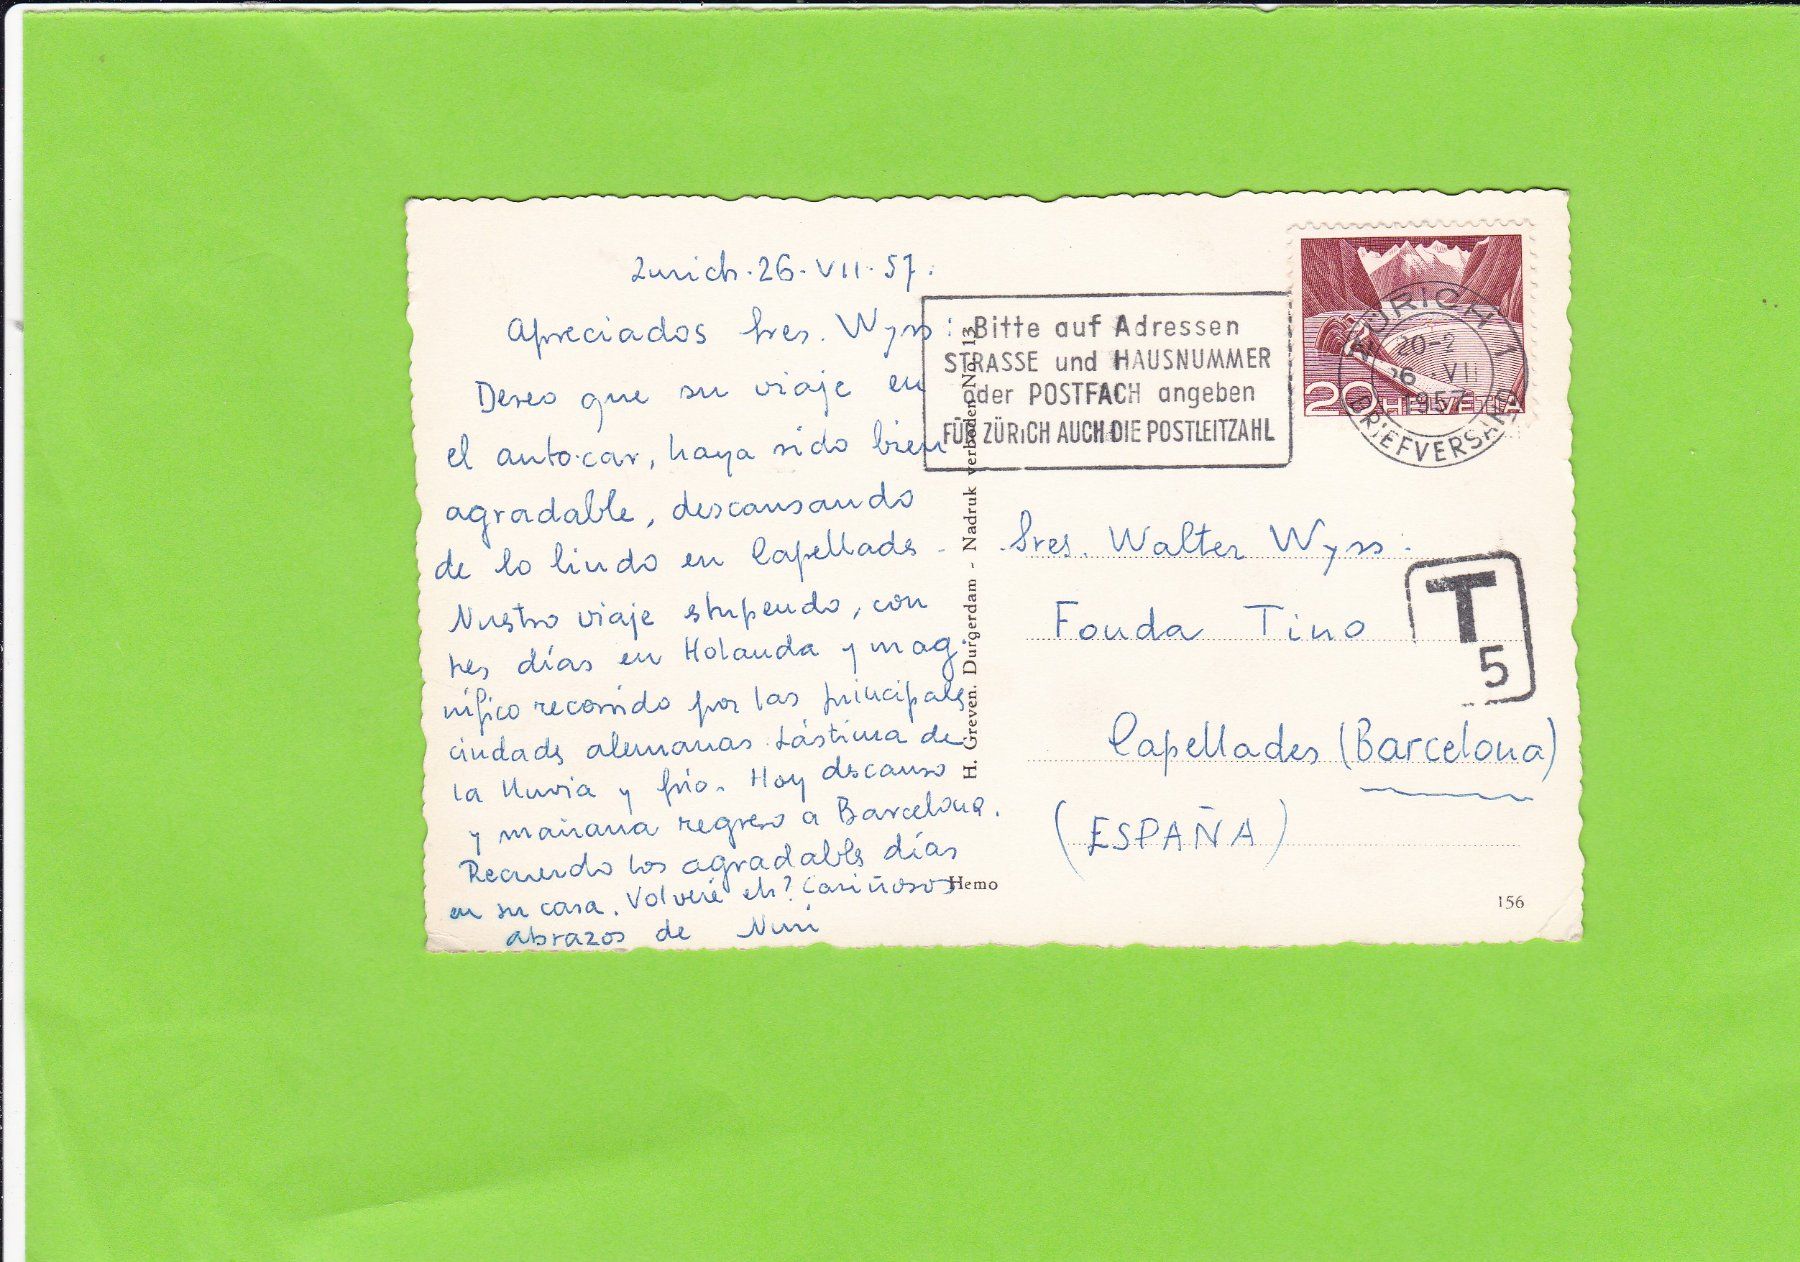 Zurich. 26. VII. 57.
Apreciados Sres. Wyss:
Deseo que su viaje en
el auto-car, haya sido bien
agradable, descansando
de lo lindo en Capellades.
Nuestro viaje estupendo, con
tres días en Holanda y mag-
nífico recorrido por las principales
ciudades alemanas. Lástima de
la lluvia y frío. Hoy descanso
y mañana regreso a Barcelona.
Recuerdo los agradables días
en su casa. Volveré eh? Cariñosos
abrazos de Nuri
H. Greven. Durgerdam - Nadruk verboden No. 13
Hemo
Bitte auf Adressen
STRASSE und HAUSNUMMER
oder POSTFACH angeben
FÜR ZÜRICH AUCH DIE POSTLEITZAHL
20 HELVETIA
ZÜRICH 1
20-2
26 VII
1957
BRIEFVERSAND
Sres. Walter Wyss.
Fonda Tino
T
5
Capellades (Barcelona)
(ESPAÑA)
156